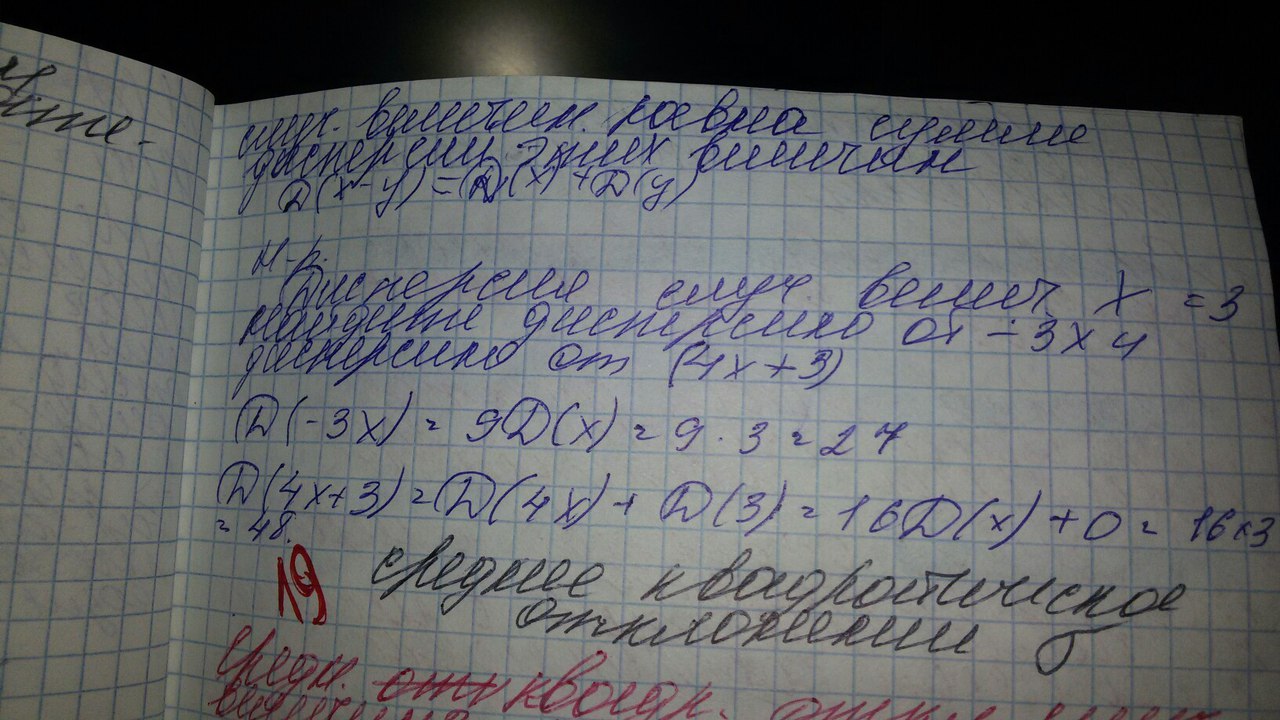 случ. величин. равна сумме
дисперсии этих величин
D(x-y) = D(x) + D(y)
Н-р.
Дисперсия случ велич. X = 3
найдите дисперсию от -3x и
дисперсию от (4x+3)
D(-3x) = 9D(x) = 9 · 3 = 27
D(4x+3) = D(4x) + D(3) = 16D(x) + 0 = 16×3
= 48.
19 среднее квадротическое
отклонении σ
средн. квадр.